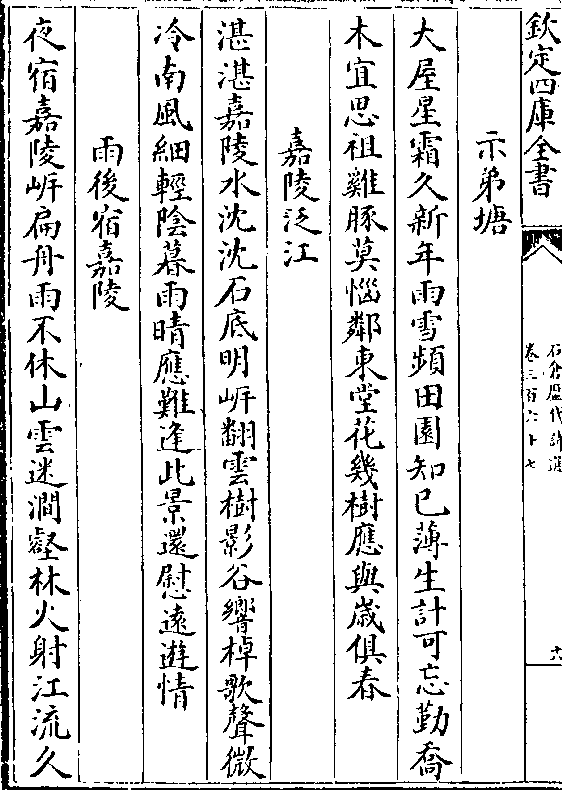 欽定四庫全書
石倉歷代詩選
卷三百六十七
十八
示弟塘
大屋星霜久新年雨雪頻田園知已薄生計可忘勤喬
木宜思祖雞豚莫惱鄰東堂花幾樹應與歲俱春
嘉陵泛江
湛湛嘉陵水沈沈石底明㟁翻雲樹影谷響棹歌聲微
冷南風細輕陰暮雨晴應難逢此景還慰遠遊情
雨後宿嘉陵
夜宿嘉陵㟁扁舟雨不休山雲迷澗壑林火射江流久